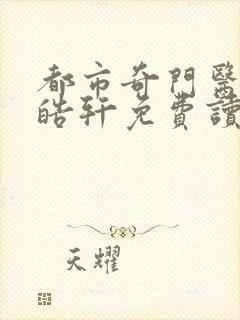 都市奇門醫
皓轩免費讀
天耀